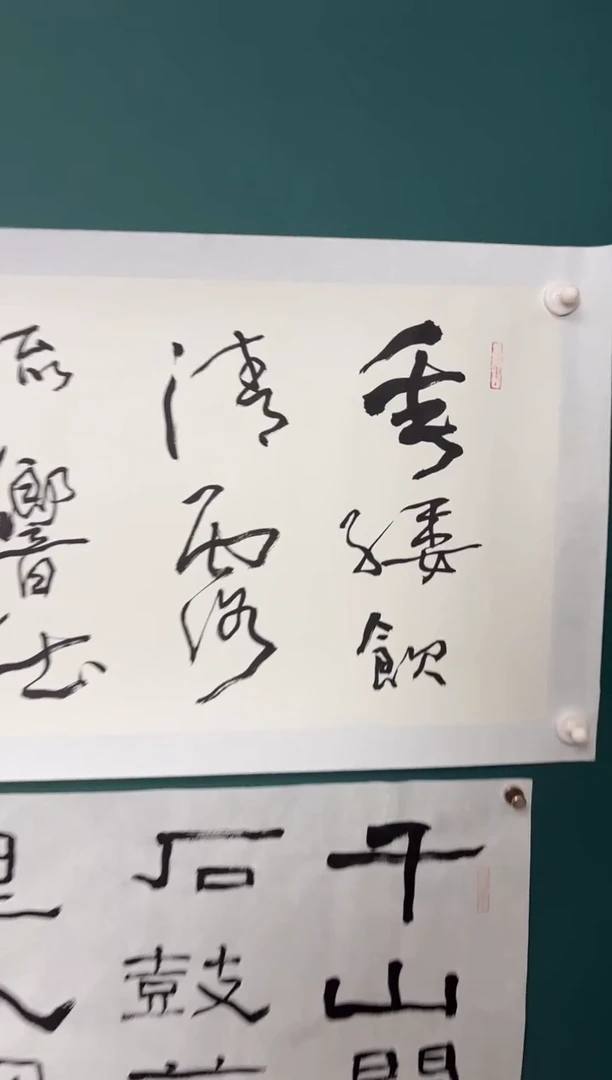 垂緌飲
清露
流響出
千山
石鼓